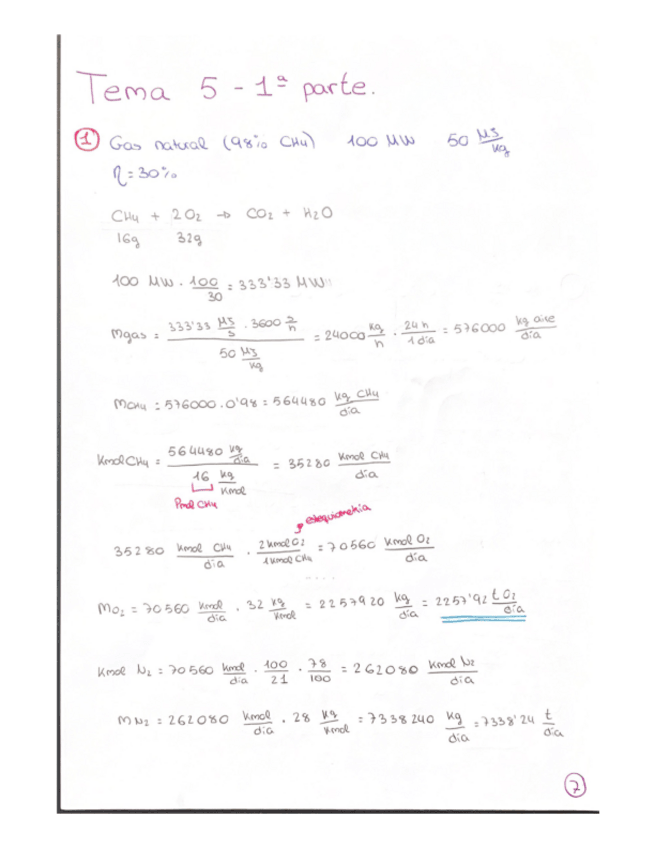 Tema 5 - 1ª parte.
① Gas natural (98% CH4) 100 MW 50 MJ/kg
η = 30%
CH4 + 2O2 → CO2 + H2O
16g 32g
100 MW · 100/30 = 333'33 MW
Mgas = (333'33 MJ/s · 3600 s/h) / (50 MJ/kg) = 24000 kg/h · 24 h/1 día = 576000 kg aire/día
MCH4 = 576000 · 0'98 = 564480 kg CH4/día
Kmol CH4 = (564480 kg/día) / (16 kg/Kmol) = 35280 Kmol CH4/día
Pmol CH4
estequiometria
35280 Kmol CH4/día · 2 Kmol O2/1 Kmol CH4 = 70560 Kmol O2/día
MO2 = 70560 Kmol/día · 32 kg/Kmol = 2257920 kg/día = 2257'92 t O2/día
Kmol N2 = 70560 Kmol/día · 100/21 · 78/100 = 262080 Kmol N2/día
MN2 = 262080 Kmol/día · 28 kg/Kmol = 7338240 kg/día = 7338'24 t/día
7